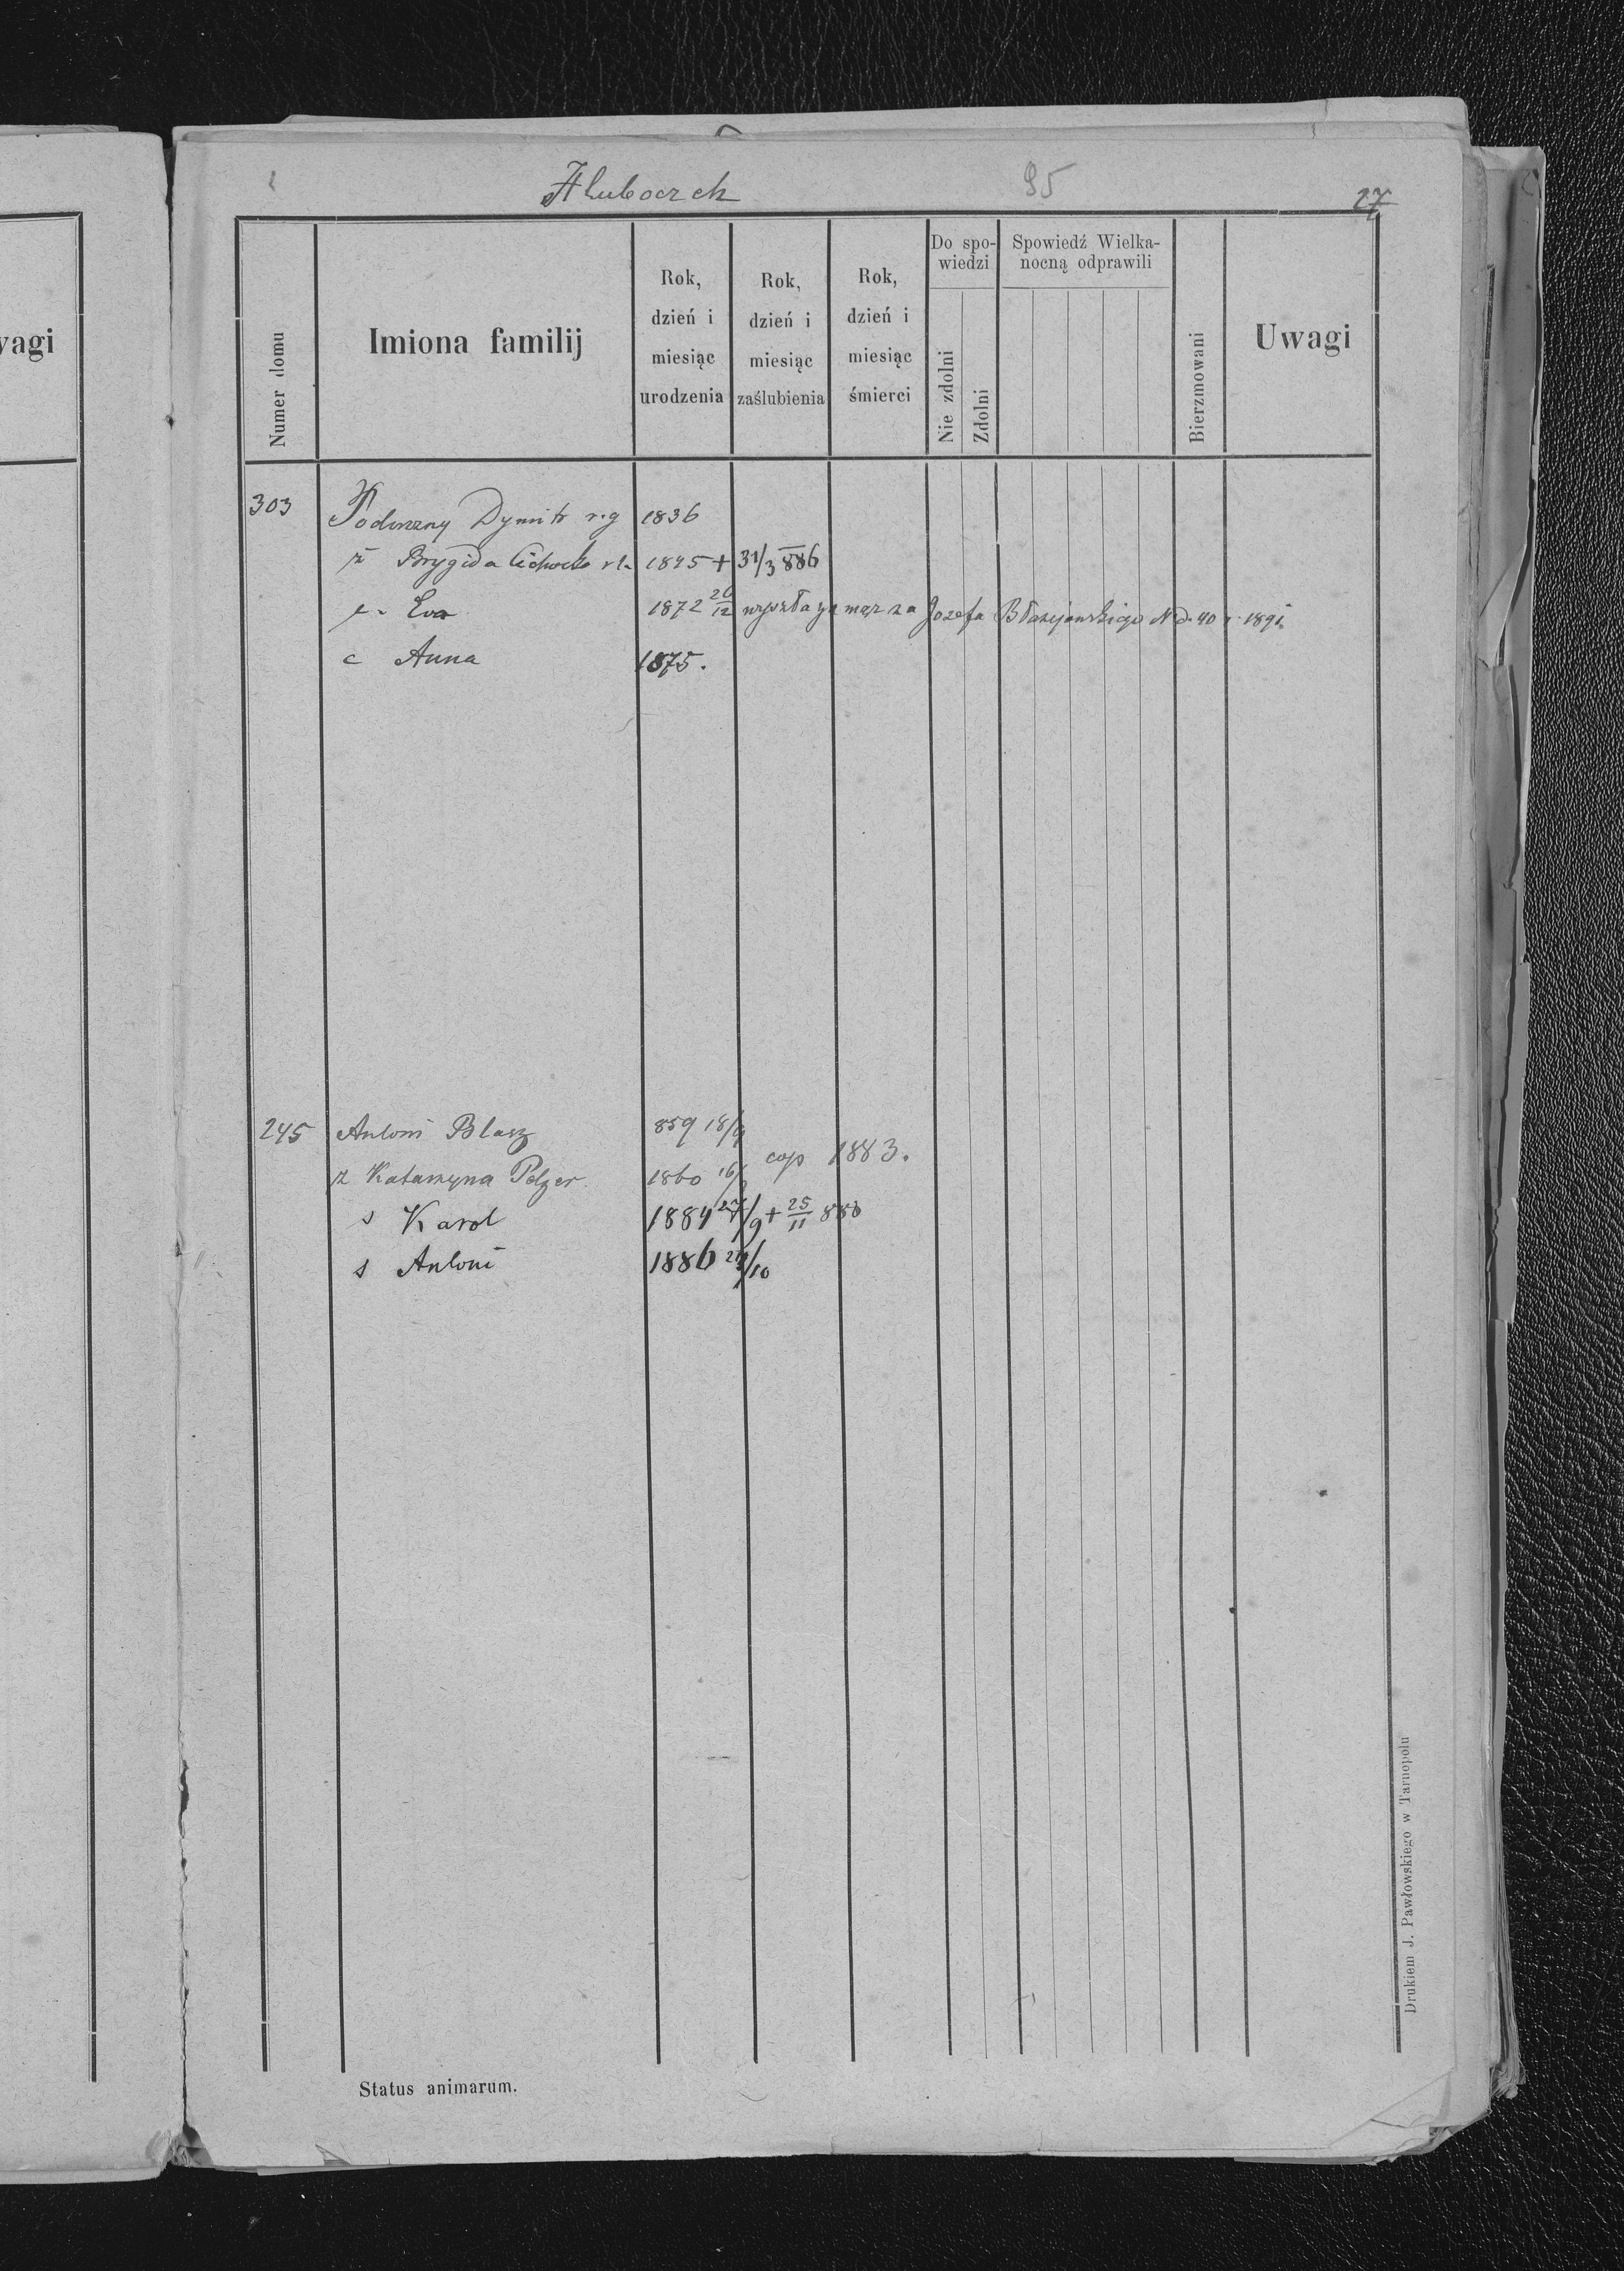 Hluboczek 95 27
Numer domu
Imiona familij
Rok, dzień i miesiąc urodzenia
Rok, dzień i miesiąc zaślubienia
Rok, dzień i miesiąc śmierci
Do spo-
wiedzi
Nie zdolni
Zdolni
Spowiedź Wielka-
nocną odprawili
Bierzmowani
Uwagi
vagi
303 Dymitr r. g 1836
ż Brygida Cichocka r. l. 1845 + 31/3 886
c. Eva 1872 26/12 wyszła za mąż za Jozefa Błażejowskiego N d. 40 r. 1891.
c Anna 1875.
245 Antoni Blasz 859 18/9
cop 1883.
ż Katarzyna Pelzer 1860 16/
s Karol 1884 27/9 + 25/11 888
s Antoni 1886 /10
Status animarum.
Drukiem J. Pawłowskiego w Tarnopolu